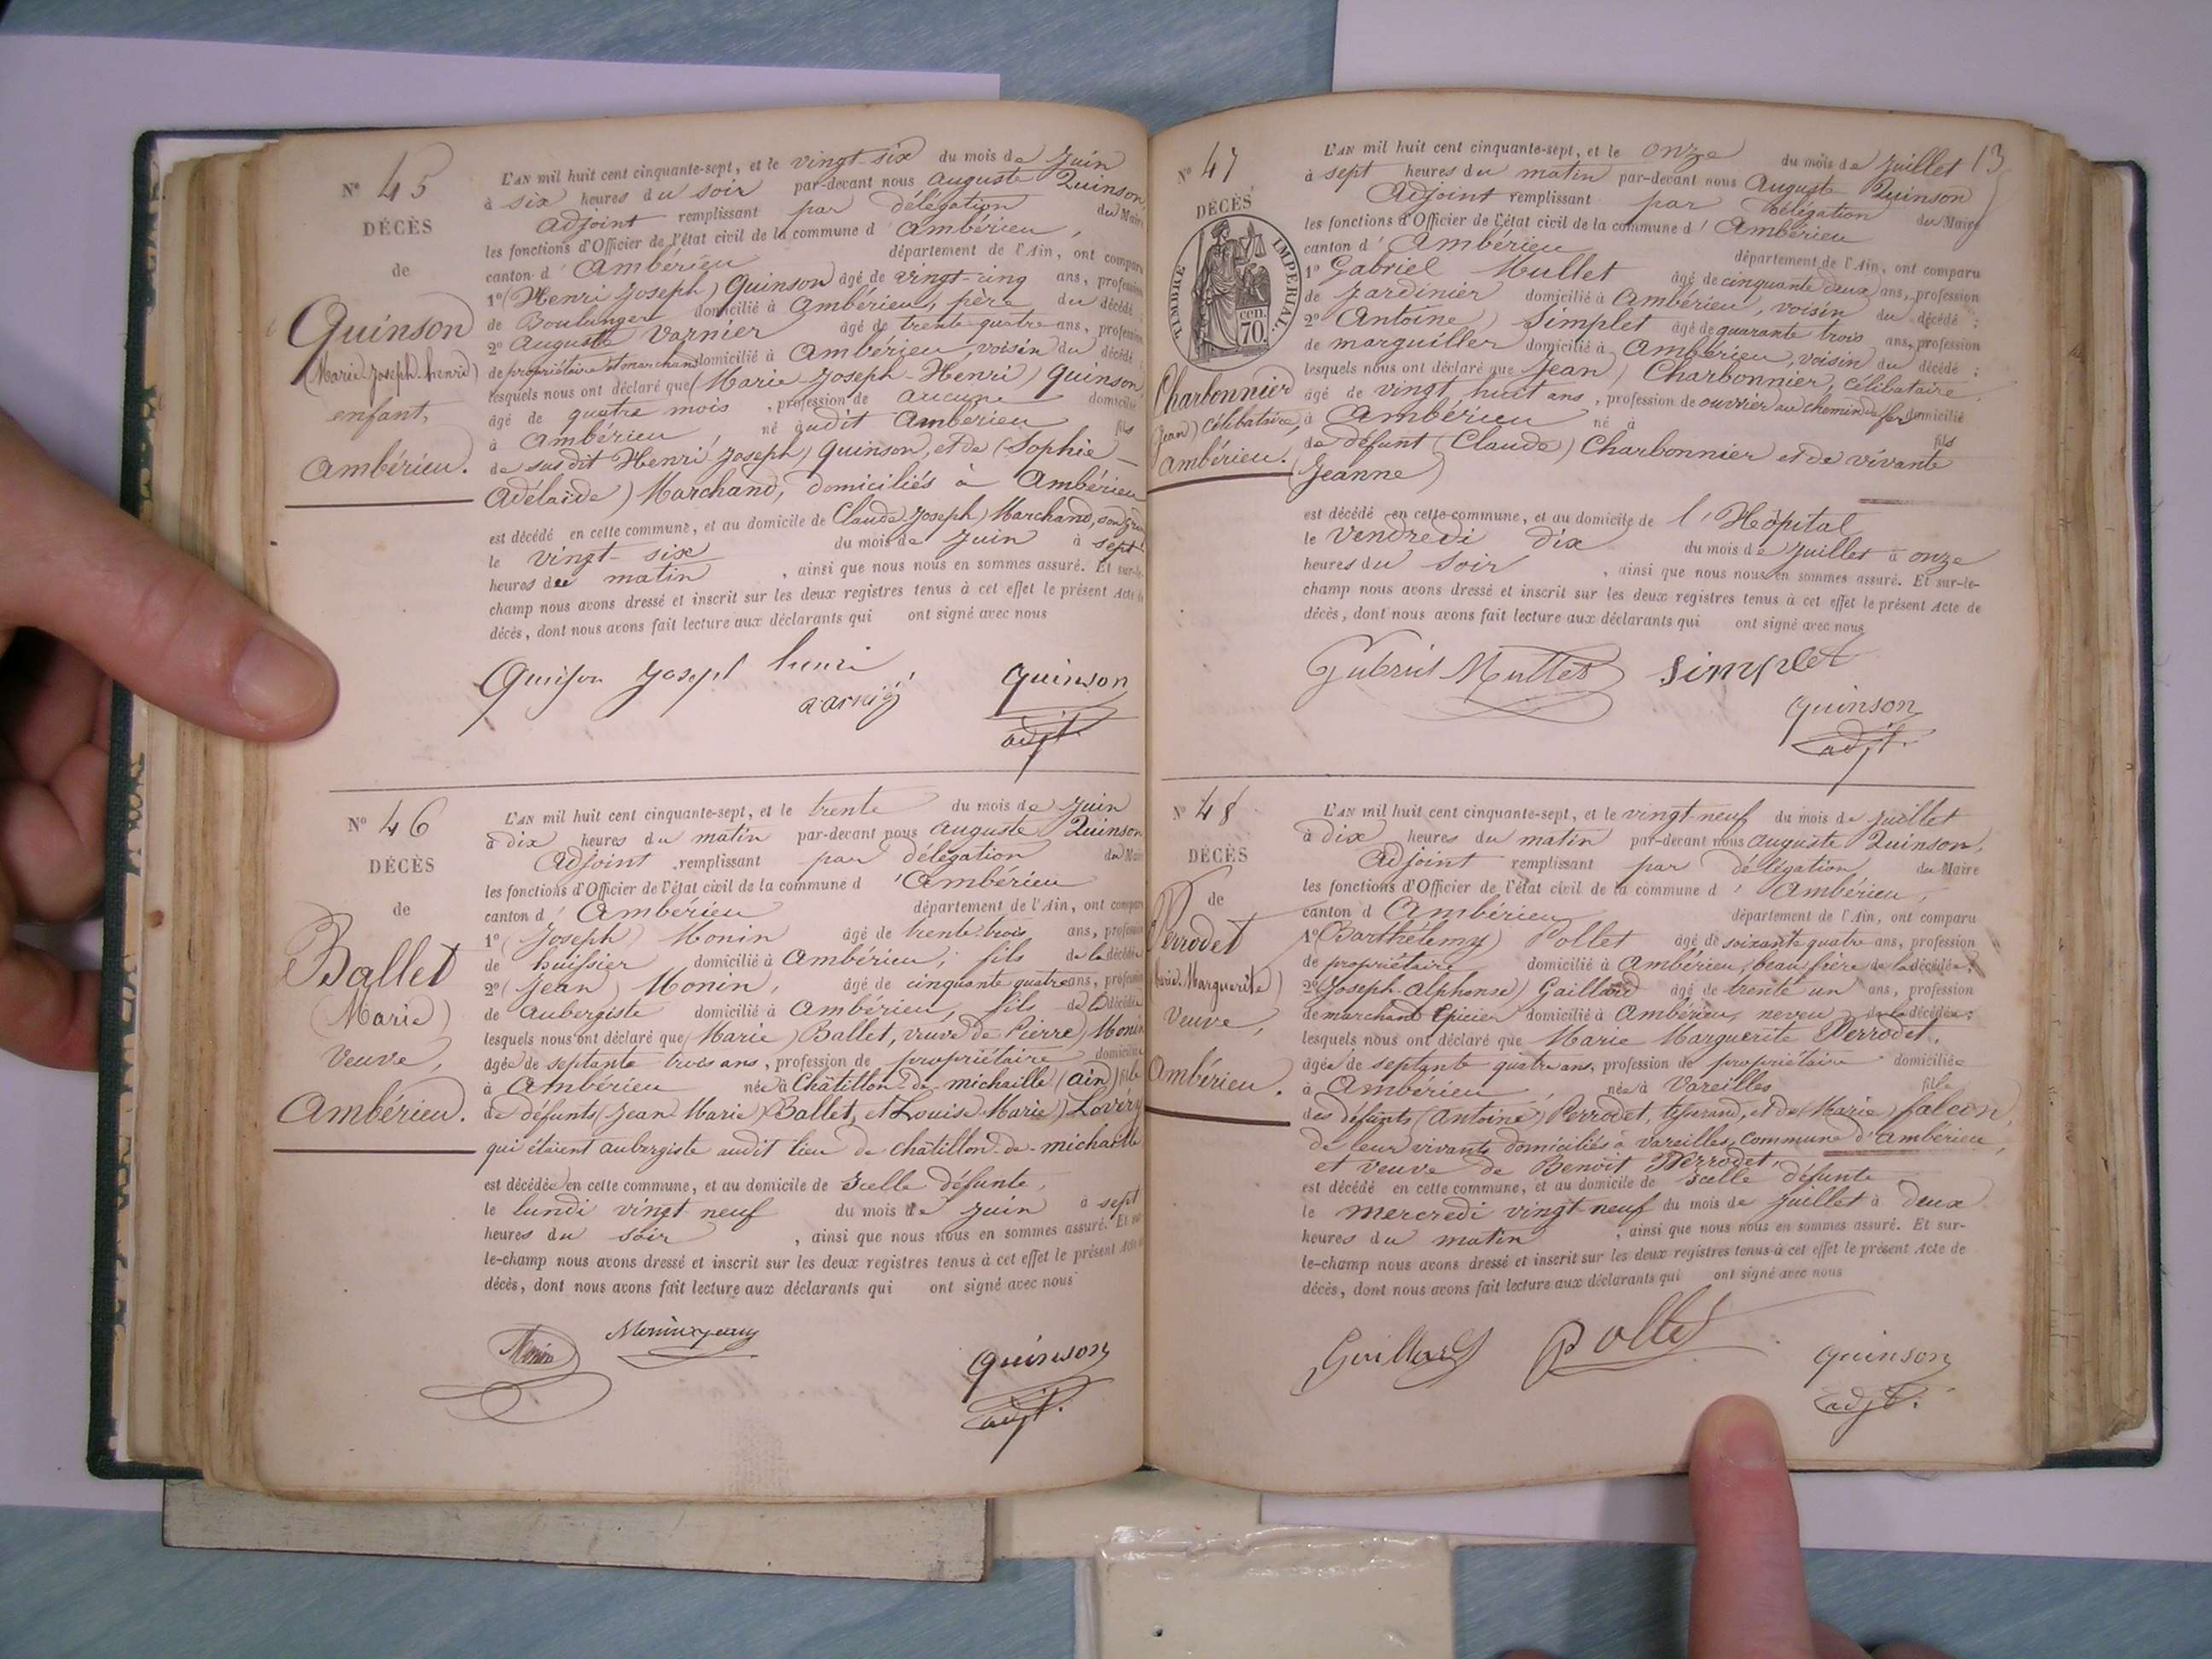 N° 45
DÉCÈS
de
Quinson
(Marie-Joseph-henri)
enfant,
Ambérieu.
L'AN mil huit cent cinquante-sept, et le vingt-six du mois de Juin
à six heures du soir par-devant nous Auguste Quinson,
Adjoint remplissant par délégation du Maire
les fonctions d'Officier de l'état civil de la commune d'Ambérieu,
canton d'Ambérieu département de l'Ain, ont comparu
1° (Henri Joseph) Quinson âgé de vingt-cinq ans, profession
de Boulanger domicilié à Ambérieu, père du décédé ;
2° Auguste Varnier âgé de trente quatre ans, profession
de propriétaire et marchand domicilié à Ambérieu, voisin du décédé
lesquels nous ont déclaré que (Marie-Joseph-Henri) Quinson,
âgé de quatre mois, profession de aucune domicilié
à Ambérieu, né audit Ambérieu fils
de susdit Henri Joseph) Quinson, et de (Sophie-
Adélaïde) Marchand, domiciliés à Ambérieu
est décédé en cette commune, et au domicile de Claude-Joseph) Marchand, son
le vingt-six du mois de Juin à sept
heures du matin, ainsi que nous nous en sommes assuré. Et sur-le-
champ nous avons dressé et inscrit sur les deux registres tenus à cet effet le présent Acte de
décès, dont nous avons fait lecture aux déclarants qui ont signé avec nous
Quinson Joseph henri
Quinson
adjt.
N° 46
DÉCÈS
de
Ballet
(Marie)
Veuve,
Ambérieu.
L'AN mil huit cent cinquante-sept, et le trente du mois de Juin
à dix heures du matin par-devant nous Auguste Quinson
Adjoint remplissant par délégation du Maire
les fonctions d'Officier de l'état civil de la commune d'Ambérieu
canton d'Ambérieu département de l'Ain, ont comparu
1° (Joseph) Monin âgé de trente-trois ans, profession
de huissier domicilié à Ambérieu, fils de la décédée
2° (Jean) Monin, âgé de cinquante quatre ans, profession
de Aubergiste domicilié à Ambérieu, fils de la décédée
lesquels nous ont déclaré que (Marie) Ballet, veuve de Pierre) Monin
âgée de septante trois ans, profession de propriétaire domiciliée
à Ambérieu née à Châtillon-de-michaille (Ain) fille
de défunts (Jean Marie) Ballet, et Louise Marie)
qui étaient aubergiste audit lieu de châtillon-de-michaille
est décédée en cette commune, et au domicile de Icelle défunte,
le lundi vingt neuf du mois de Juin à sept
heures du soir, ainsi que nous nous en sommes assuré. Et sur-
le-champ nous avons dressé et inscrit sur les deux registres tenus à cet effet le présent Acte de
décès, dont nous avons fait lecture aux déclarants qui ont signé avec nous
Monin Monin jean
Quinson
adjt.
13
N° 47
DÉCÈS
TIMBRE IMPÉRIAL.
cen.
70.
Charbonnier
(Jean) Célibataire,
Ambérieu.
L'AN mil huit cent cinquante-sept, et le onze du mois de Juillet
à sept heures du matin par-devant nous Auguste Quinson
Adjoint remplissant par délégation du Maire
les fonctions d'Officier de l'état civil de la commune d'Ambérieu
canton d'Ambérieu département de l'Ain, ont comparu
1° Gabriel Mullet âgé de cinquante deux ans, profession
de Jardinier domicilié à Ambérieu, voisin du décédé ;
2° Antoine) Simplet âgé de quarante trois ans, profession
de marguiller domicilié à Ambérieu, voisin du décédé ;
lesquels nous ont déclaré que Jean) Charbonnier, célibataire,
âgé de vingt huit ans, profession de ouvrier au chemin de fer domicilié
à Ambérieu né à fils
de défunt (Claude) Charbonnier et de vivante
(Jeanne)
est décédé en cette commune, et au domicile de l'Hôpital
le Vendredi dix du mois de Juillet à onze
heures du soir, ainsi que nous nous en sommes assuré. Et sur-le-
champ nous avons dressé et inscrit sur les deux registres tenus à cet effet le présent Acte de
décès, dont nous avons fait lecture aux déclarants qui ont signé avec nous
Gabriel Mullet Simplet
Quinson
adjt.
N° 48
DÉCÈS
de
Perrodet
Marie-Marguerite)
Veuve,
Ambérieu.
L'AN mil huit cent cinquante-sept, et le vingt-neuf du mois de Juillet
à dix heures du matin par-devant nous Auguste Quinson,
Adjoint remplissant par délégation du Maire
les fonctions d'Officier de l'état civil de la commune d'Ambérieu,
canton d'Ambérieu département de l'Ain, ont comparu
1° (Barthélemy) Pollet âgé de soixante quatre ans, profession
de propriétaire domicilié à Ambérieu, beau frère de la décédée ;
2° (Joseph-Alphonse) Gaillard âgé de trente un ans, profession
de marchand Epicier domicilié à Ambérieu, neveu de la décédée ;
lesquels nous ont déclaré que Marie Marguerite Perrodet,
âgée de septante quatre ans, profession de propriétaire domiciliée
à Ambérieu, née à Vareilles fille
des défunts (Antoine) Perrodet, tisserand, et de (Marie) falcon,
de leur vivants domiciliés à Vareilles, commune d'Ambérieu,
et veuve de Benoît Perrodet,
est décédé en cette commune, et au domicile de Icelle défunte
le mercredi vingt neuf du mois de Juillet à deux
heures du matin, ainsi que nous nous en sommes assuré. Et sur-
le-champ nous avons dressé et inscrit sur les deux registres tenus à cet effet le présent Acte de
décès, dont nous avons fait lecture aux déclarants qui ont signé avec nous
Gaillard Pollet
Quinson
adjt.